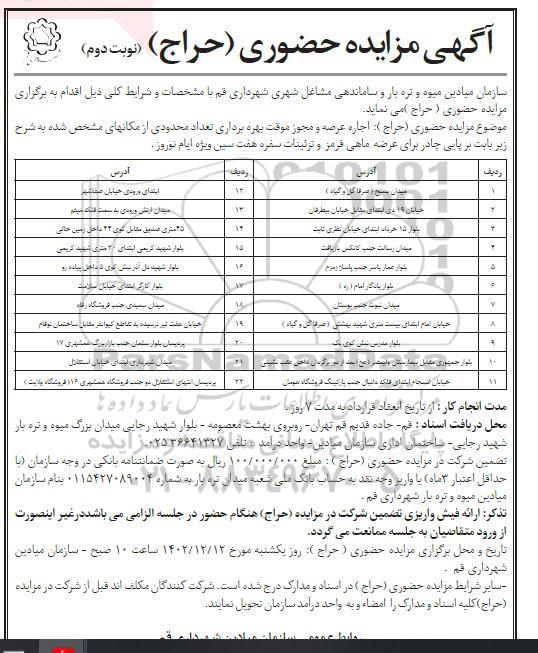 آگهی مزایده حضوری (حراج) (نوبت دوم)
سازمان میادین میوه و تره بار و ساماندهی مشاغل شهری شهرداری قم با مشخصات و شرایط کلی ذیل اقدام به برگزاری
مزایده حضوری ( حراج )می نماید.
موضوع مزایده حضوری (حراج ): اجاره عرصه و مجوز موقت بهره برداری تعداد محدودی از مکانهای مشخص شده به شرح
زیر بابت بر پایی چادر برای عرضه ماهی قرمز و تزئینات سفره هفت سین ویژه ایام نوروز .
ردیف آدرس ردیف آدرس
۱ میدان بسیج ( صرفا گل و گیاه ) ۱۲ ابتدای ورودی خیابان صفاشهر
۲ خیابان ۱۹ دی ابتدای مقابل خیابان بیطرفان ۱۳ میدان ارتش ورودی به سمت فلکه میثم
۳ بلوار ۱۵ خرداد ابتدای خیابان نظری ثابت ۱۴ ۴۵متری صدوق مقابل کوی ۴۴ داخل زمین خالی
۴ میدان رسالت جنب کانکس بازیافت ۱۵ بلوار شهید کریمی ابتدای ۲۰ متری شهید کریمی
۵ بلوار عمار یاسر جنب پاساژ زمزم ۱۶ بلوار شهید دل آذر نبش کوی ۵ داخل پیاده رو
۶ بلوار یادگار امام ( ره ) ۱۷ بلوار کارگر ابتدای خیابان سلامت
۷ میدان نبوت جنب بوستان ۱۸ میدان سعیدی جنب فروشگاه رفاه
۸ خیابان امام ابتدای بیست متری شهید بهشتی ( صرفا گل و گیاه ) ۱۹ خیابان هفت تیر نرسیده به تقاطع کیوانفر مقابل ساختمان نوفام
۹ بلوار مدرس نبش کوی یک ۲۰ پردیسان بلوار سلمان جنب بازار بزرگ همشهری ۱۷
۱۰ بلوار جمهوری مقابل بیمارستان ولیعصر (عج) بعد از دوربرگردان داخل عقب نشینی ۲۱ میدان شهرداری ابتدای خیابان استقلال
۱۱ خیابان انسجام ابتدای فلکه دانیال جنب پارکینگ فروشگاه هومان ۲۲ پردیسان انتهای استقلال دو جنب فروشگاه همشهری ۱۶( فروشگاه ولایت )
مدت انجام کار : از تاریخ انعقاد قرارداد به مدت ۷ روز .
محل دریافت اسناد : قم- جاده قدیم قم تهران- روبروی بهشت معصومه - بلوار شهید رجایی میدان بزرگ میوه و تره بار
شهید رجایی- ساختمان اداری سازمان میادین- واحد درآمد تلفن ۳۶۶۴۱۳۲۷ ۰۲۵
تضمین شرکت در مزایده حضوری (حراج ) : مبلغ ۱۰۰/۰۰۰/۰۰۰ ریال به صورت ضمانتنامه بانکی در وجه سازمان (با
حداقل اعتبار ۳ماه) یا واریز وجه نقد به حساب بانک ملی شعبه میدان تره بار به شماره ۰۱۱۵۴۲۷۰۸۹۰۰۴ بنام سازمان
میادین میوه و تره بار شهرداری قم .
تذکر: ارائه فیش واریزی تضمین شرکت در مزایده (حراج) هنگام حضور در جلسه الزامی می باشددرغیر اینصورت
از ورود متقاضیان به جلسه ممانعت می گردد.
تاریخ و محل برگزاری مزایده حضوری ( حراج ): روز یکشنبه مورخ ۱۴۰۲/۱۲/۱۲ ساعت ۱۰ صبح - سازمان میادین
شهرداری قم .
-سایر شرایط مزایده حضوری (حراج ) در اسناد و مدارک درج شده است. شرکت کنندگان مکلف اند قبل از شرکت در مزایده
(حراج)کلیه اسناد و مدارک را امضاء و به واحد درآمد سازمان تحویل نمایند.
روابط عمومی سازمان میادین شهرداری قم